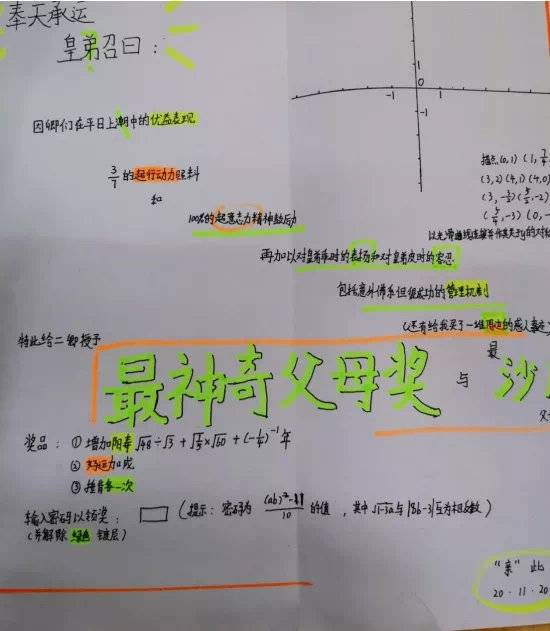 奉天承运
皇弟召曰：
1
0
-1
1
-1
因卿们在平日上潮中的优益表现
描点(0,1)(1,
(3,2)(4,1)(4,0)
3/7的超行动力照料
和
100%的超意志力精神助后力
以光滑曲线连接并作其关于y的对称
再加以对皇弟乖时的表扬和对皇弟皮时的容忍
包括意外佛系但很成功的管理机制
(还有给我买了一堆周边的感人事迹)
特此给二卿授予
最神奇父母奖 与 最沙
奖品：① 增加阳寿√48÷√3+√(1/5)×√60+(-1/4)⁻¹年
② 好运加成
③ 捶背各一次
输入密码以领奖：□（提示：密码为 (ab)²-11/10 的值，其中√1-3a与|8b-3|互为相反数）
(并解除绿色镀层)
“亲”此
20·11·20